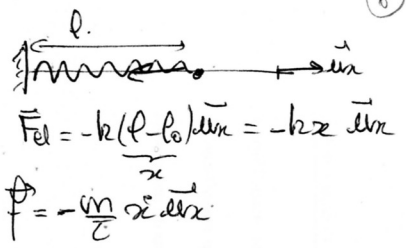 l.
u⃗x
F⃗el = -k(l-l₀)u⃗x = -kx u⃗x
x
f⃗ = -m/τ ẋ u⃗x